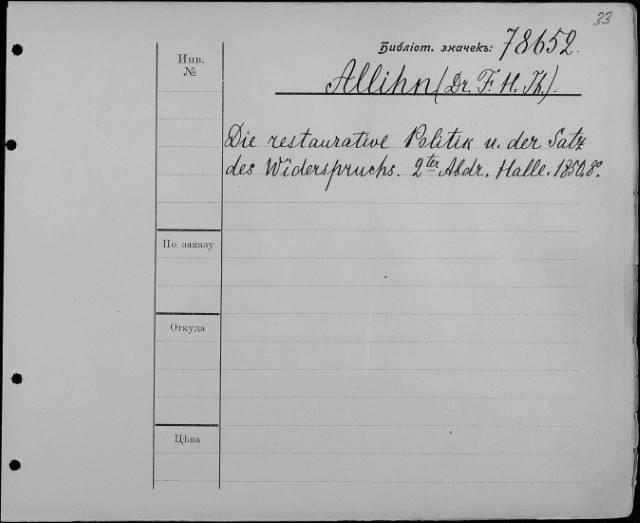 33
Библіот. значекъ: 78652.
Инв.
№
Allihn (Dr. F. H. Th.).
Die restaurative Politik u. der Satz
des Widerspruchs. 2ter Abdr. Halle. 1850. 8º.
По заказу
Откуда
Цѣна